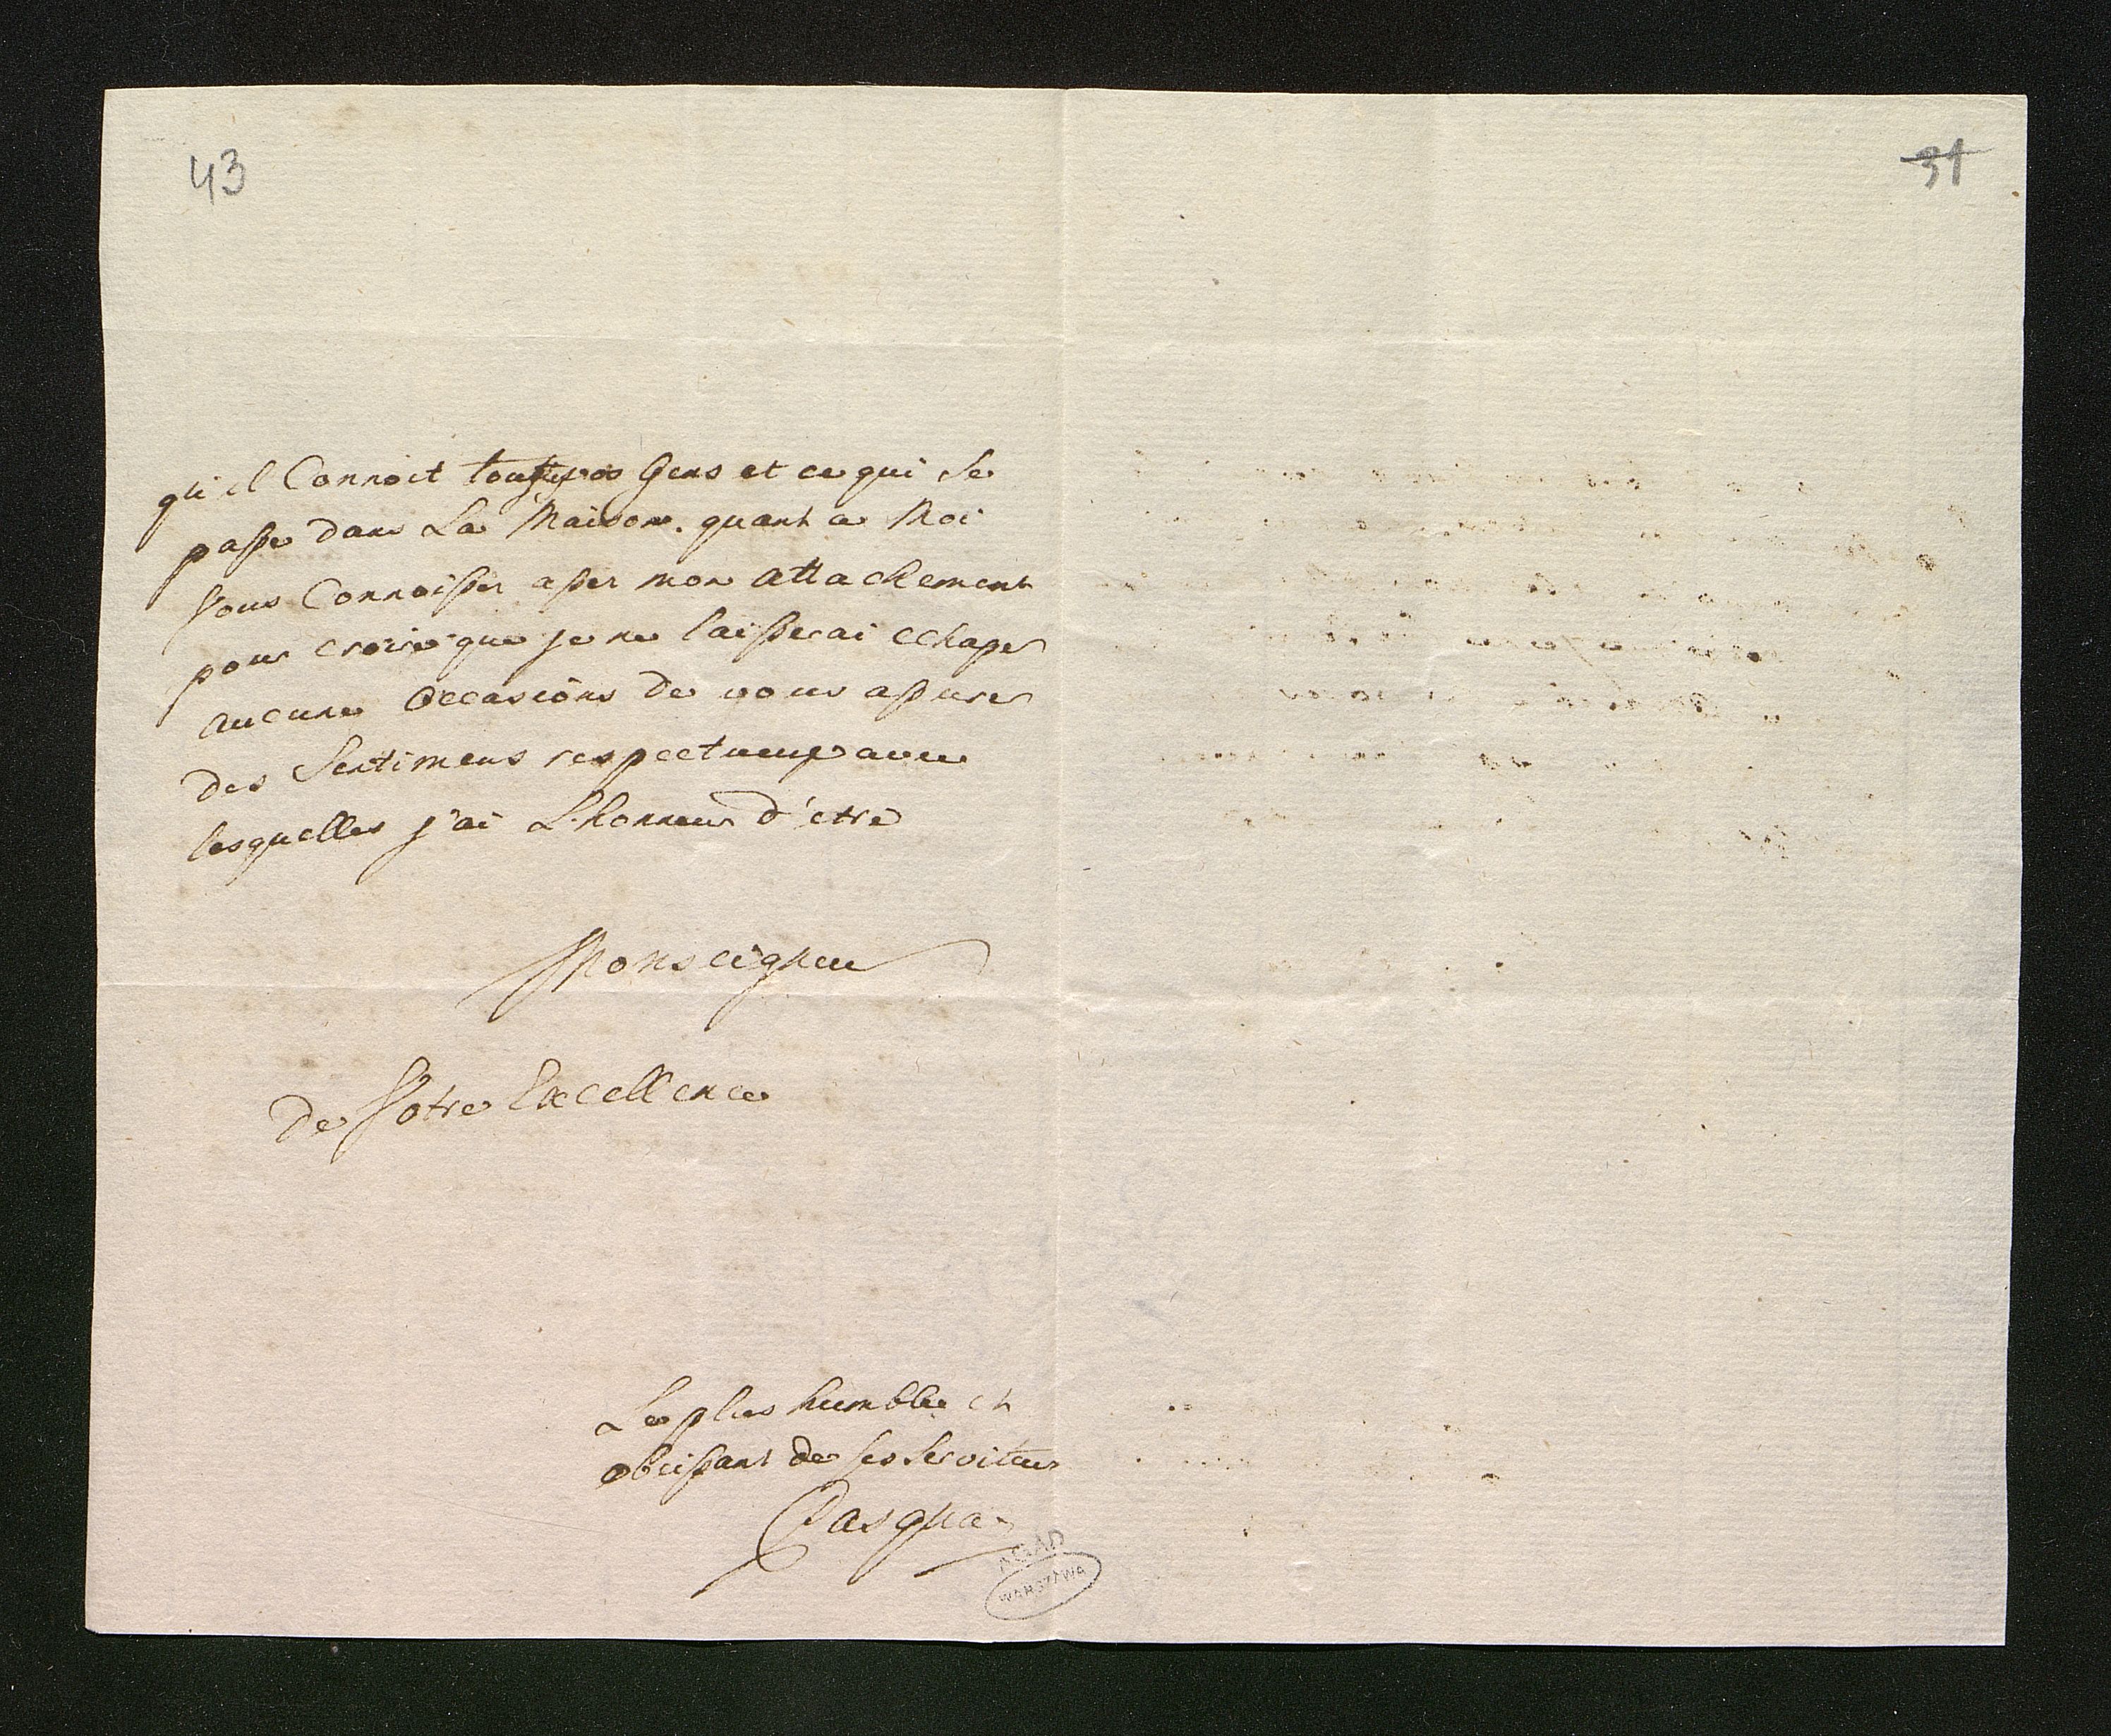 43
31
qu'il Connoit tous vos Gens et ce qui se
passe dans La Maison. quant a Moi
Vous Connoisses asses mon attachement
pour croire que je ne laisserai echaper
aucune Occasions de vous assurer
des Sentimens respectueux avec
lesquelles j'ai L'honneur d'etre
Monseigneur
de Votre Excellence
Le plus humble et
obeissant de ses serviteur
Pasqua
AGAD
WARSZAWA